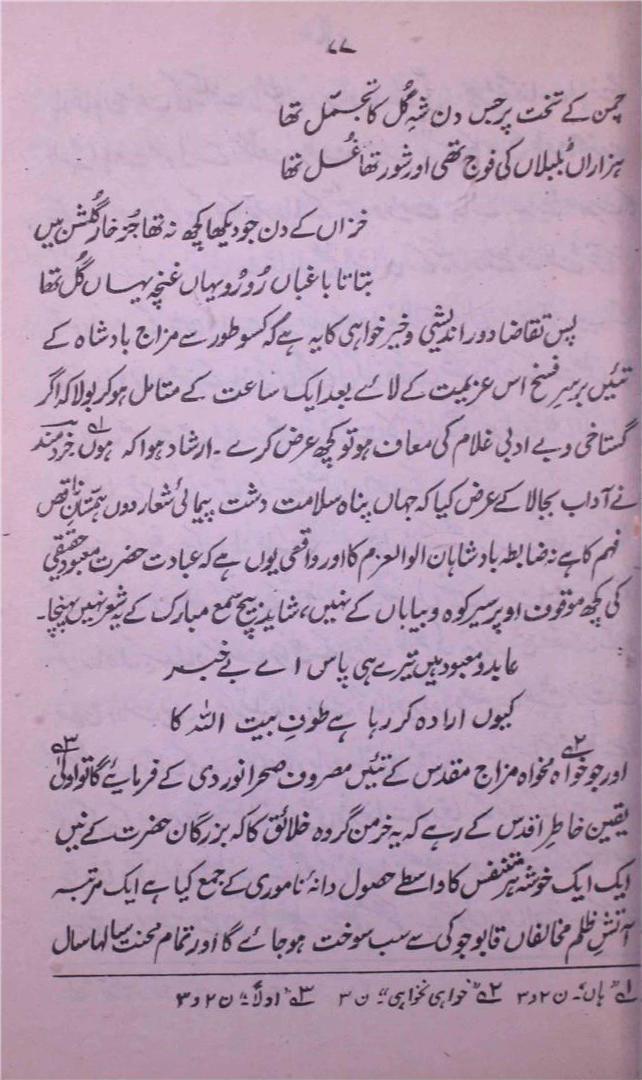 ۷۷
چمن کے تخت پر جس دن شہِ گُل کا تجمّل تھا
ہزاراں بُلبلاں کی فوج تھی اور شور تھا غُل تھا
خزاں کے دن جو دیکھا کچھ نہ تھا جُز خار گلشن میں
بتاتا باغباں رُو رُو یہاں غنچہ یہاں گُل تھا
پس تقاضا دور اندیشی و خیر خواہی کا یہ ہے کہ کسو طور سے مزاج بادشاہ کے
تئیں برسرِ فسخ اس عزیمت کے لائے بعد ایک ساعت کے متامل ہو کر بولا کہ اگر
گستاخی و بے ادبی غلام کی معاف ہو تو کچھ عرض کرے۔ ارشاد ہوا کہ ہوں۱ خرد مند
نے آداب بجا لا کے عرض کیا کہ جہاں پناہ سلامت دشت پیمائی شعار دوں ہمتانِ ناقص
فہم کا ہے نہ ضابطہ بادشاہان الوالعزم کا اور واقعی یوں ہے کہ عبادت حضرت معبودِ حقیقی
کی کچھ موقوف اوپر سیر کوہ و بیاباں کے نہیں، شاید بیچ سمع مبارک کے یہ شعر نہیں پہنچا۔
عابد و معبود ہیں تیرے ہی پاس اے بے خبر
کیوں ارادہ کر رہا ہے طوفِ بیت اللہ کا
اور جو خواہ۲ مخواہ مزاج مقدس کے تئیں مصروف صحرا نوردی کے فرمایئے گا تو اولیٰ۳
یقین خاطرِ اقدس کے رہے کہ یہ خرمن گروہ خلائق کا کہ بزرگان حضرت کے نیں
ایک ایک خوشہ ہر متنفس کا واسطے حصول دانۂ ناموری کے جمع کیا ہے ایک مرتبہ
آتشِ ظلم مخالفاں قابو جو کی سے سب سوخت ہو جائے گا اور تمام محنت سالہا سال
۱؎ "ہاں" ن ۲ و ۳ ۲؎ "خواہی نخواہی" ن ۳ ۳؎ "اولاً" ن ۲ و ۳